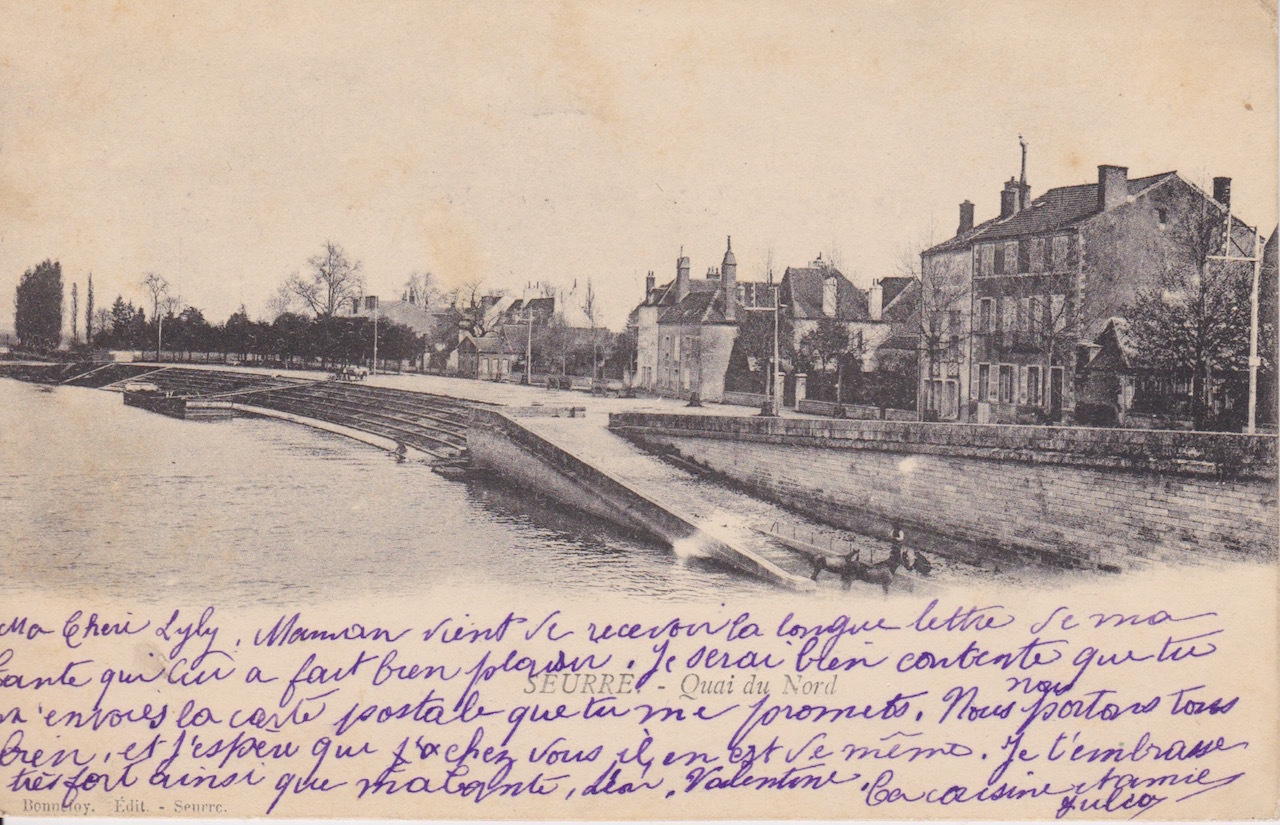 Ma Cheri Lyly, Maman vient de recevoir la longue lettre de ma
tante qui lui a fait bien plaisir. Je serai bien contente que tu
m'envoies la carte postale que tu me promets. Nous nous portons tous
SEURRE. - Quai du Nord
bien, et j'espère que chez vous il en est de même. Je t'embrasse
très fort ainsi que ma tante, Valentine. Ta cousine et amie
Julia
Bonnefoy. Édit. - Seurre.